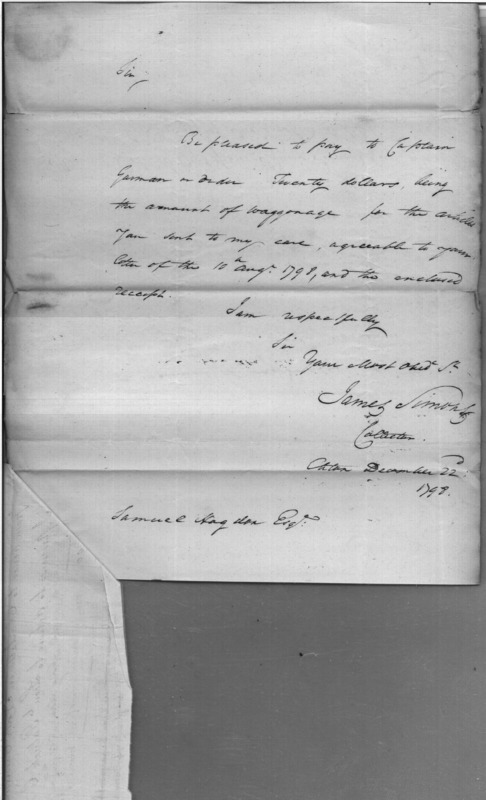 Sir,
Be pleased to pay to Captain
Garman or order Twenty dollars, being
the amount of waggonage for the articles
you sent to my care, agreeable to your
letter of the 10th augt. 1798, and the enclosed
receipt.
I am respectfully
Sir
Your Most Obed. St.
James Simons
Collector.
Chton December 22d
1798.
Samuel Hogdon Esqr.